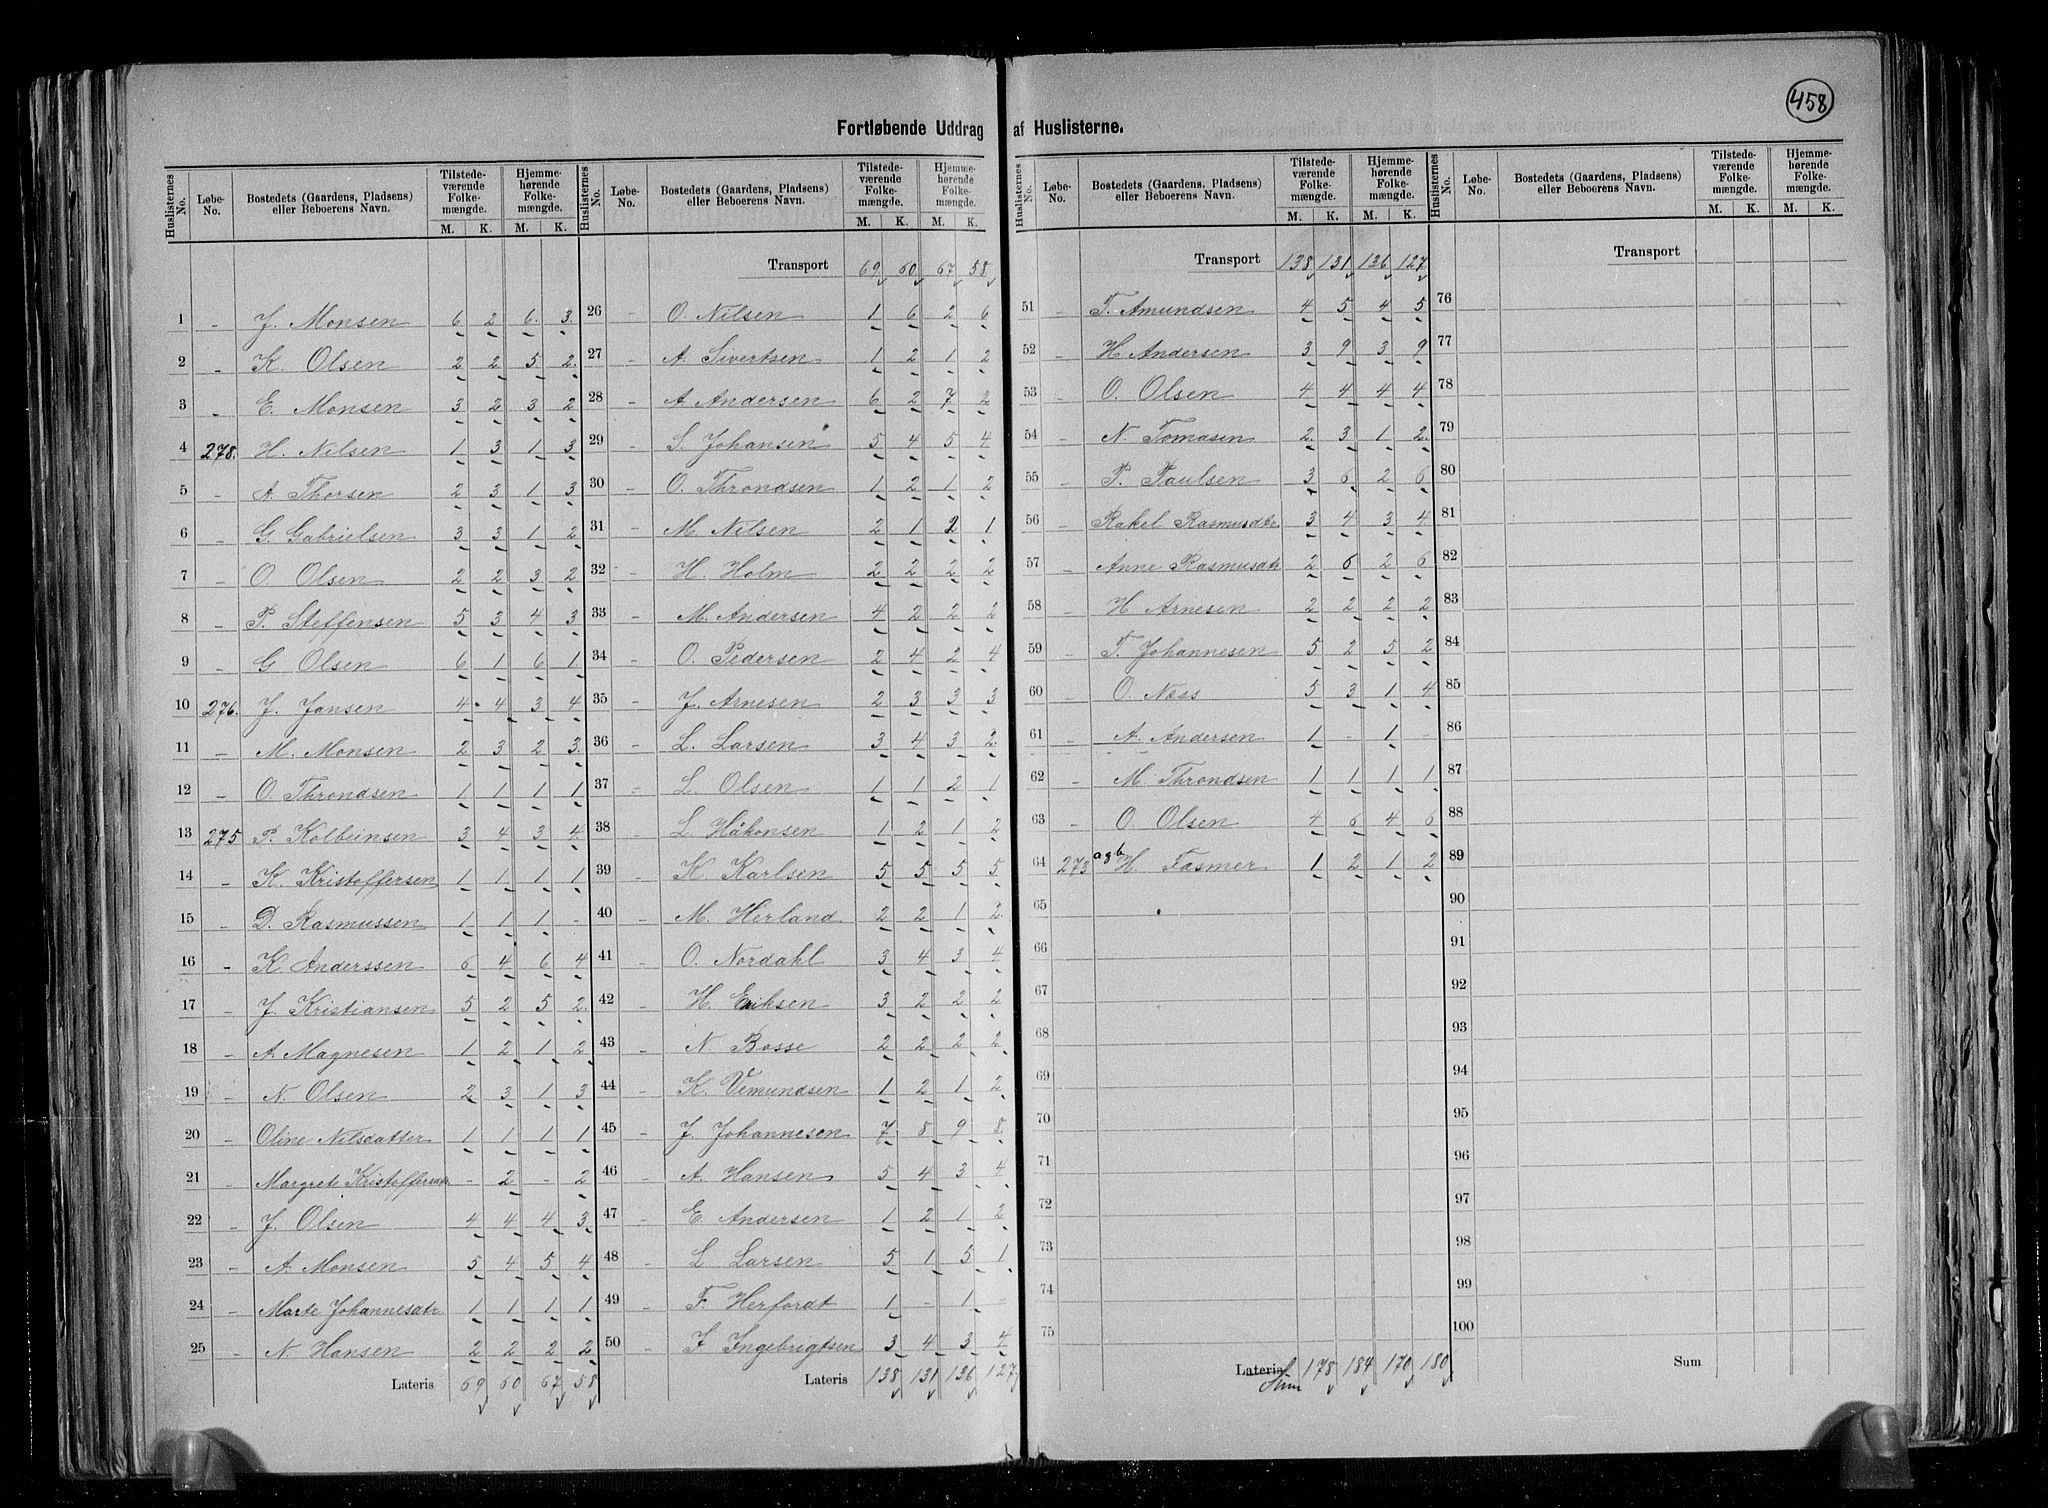 458
Fortløbende Uddrag af Huslisterne.
Huslisternes No. Løbe-No. Bostedets (Gaardens, Pladsens) eller Beboerens Navn. Tilstedeværende Folkemængde. M. K. Hjemmehørende Folkemængde. M. K.
1 - J. Monsen 6 2 6 3
2 - K. Olsen 2 2 5 2
3 - E. Monsen 3 2 3 2
4 278. H. Nilsen 1 3 1 3
5 - A. Thorsen 2 3 1 3
6 - G. Gabrielsen 3 3 1 2
7 - O. Olsen 2 2 3 2
8 - P. Steffensen 5 3 4 3
9 - G Olsen 6 1 6 1
10 276. J. Jansen 4 4 3 4
11 - M. Monsen 2 3 2 3
12 - O. Throndsen 1 1 1 1
13 275 P. Kolbeinsen 3 4 3 4
14 - K. Kristoffersen 1 1 1 1
15 - D. Rasmussen 1 1 1 -
16 - K Anderssen 6 4 6 4
17 - J. Kristiansen 5 2 5 2
18 - A. Magnesen 1 2 1 2
19 - N. Olsen 2 3 1 3
20 - Oline Nilsdatter 1 1 1 1
21 - Margrete Kristoffersdtr - 2 - 2
22 - J. Olsen 4 4 4 3
23 - A. Monsen 5 4 5 4
24 - Marte Johannesdtr 1 1 1 1
25 - N. Hansen 2 2 2 2
Lateris 69 60 67 58
Huslisternes No. Løbe-No. Bostedets (Gaardens, Pladsens) eller Beboerens Navn. Tilstedeværende Folkemængde. M. K. Hjemmehørende Folkemængde. M. K.
Transport 69 60 67 58
26 - O. Nilsen 1 6 2 6
27 - A. Sivertsen 1 2 1 2
28 - A Andersen 6 2 7 2
29 - S. Johansen 5 4 5 4
30 - O. Throndsen 1 2 1 2
31 - M. Nilsen 2 1 2 1
32 - H. Holm 2 2 2 2
33 - M. Andersen 4 2 2 2
34 - O. Pedersen 2 4 2 4
35 - J. Arnesen 2 3 3 3
36 - L. Larsen 3 4 3 2
37 - L. Olsen 1 1 2 1
38 - L. Håkonsen 1 2 1 2
39 - K Karlsen 5 5 5 5
40 - M. Herland 2 2 1 2
41 - O. Nordahl 3 4 3 4
42 - H. Eriksen 3 2 2 2
43 - N. Bosse 2 2 2 2
44 - K. Vemundsen 1 2 1 2
45 - J Johannesen 7 8 9 8
46 - A. Hansen 5 4 3 4
47 - E. Andersen 1 2 1 2
48 - L Larsen 5 1 5 1
49 - F. Herfordt 1 - 1 -
50 - J Ingebrigtsen 3 4 3 4
Lateris 138 131 136 127
Huslisternes No. Løbe-No. Bostedets (Gaardens, Pladsens) eller Beboerens Navn. Tilstedeværende Folkemængde. M. K. Hjemmehørende Folkemængde. M. K.
Transport 138 131 136 127
51 - T. Amundsen 4 5 4 5
52 - H Andersen 3 9 3 9
53 - O. Olsen 4 4 4 4
54 - N. Tomasen 2 3 1 2
55 - P. Paulsen 3 6 2 6
56 - Rakel Rasmusdtr 3 4 3 4
57 - Anne Rasmusdtr 2 6 2 6
58 - H Arnesen 2 2 2 2
59 - T. Johannesen 5 2 5 2
60 - O. Ness 5 3 1 4
61 - A. Andersen 1 - 1 -
62 - M Throndsen 1 1 1 1
63 - O Olsen 4 6 4 6
64 273 agb H. Fasmer 1 2 1 2
65
66
67
68
69
70
71
72
73
74
75
Lateris Sum 178 184 170 180
Huslisternes No. Løbe-No. Bostedets (Gaardens, Pladsens) eller Beboerens Navn. Tilstedeværende Folkemængde. M. K. Hjemmehørende Folkemængde. M. K.
Transport
76
77
78
79
80
81
82
83
84
85
86
87
88
89
90
91
92
93
94
95
96
97
98
99
100
Sum